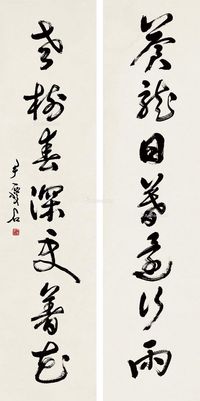 苍龙日暮还行雨
老树春深更著花